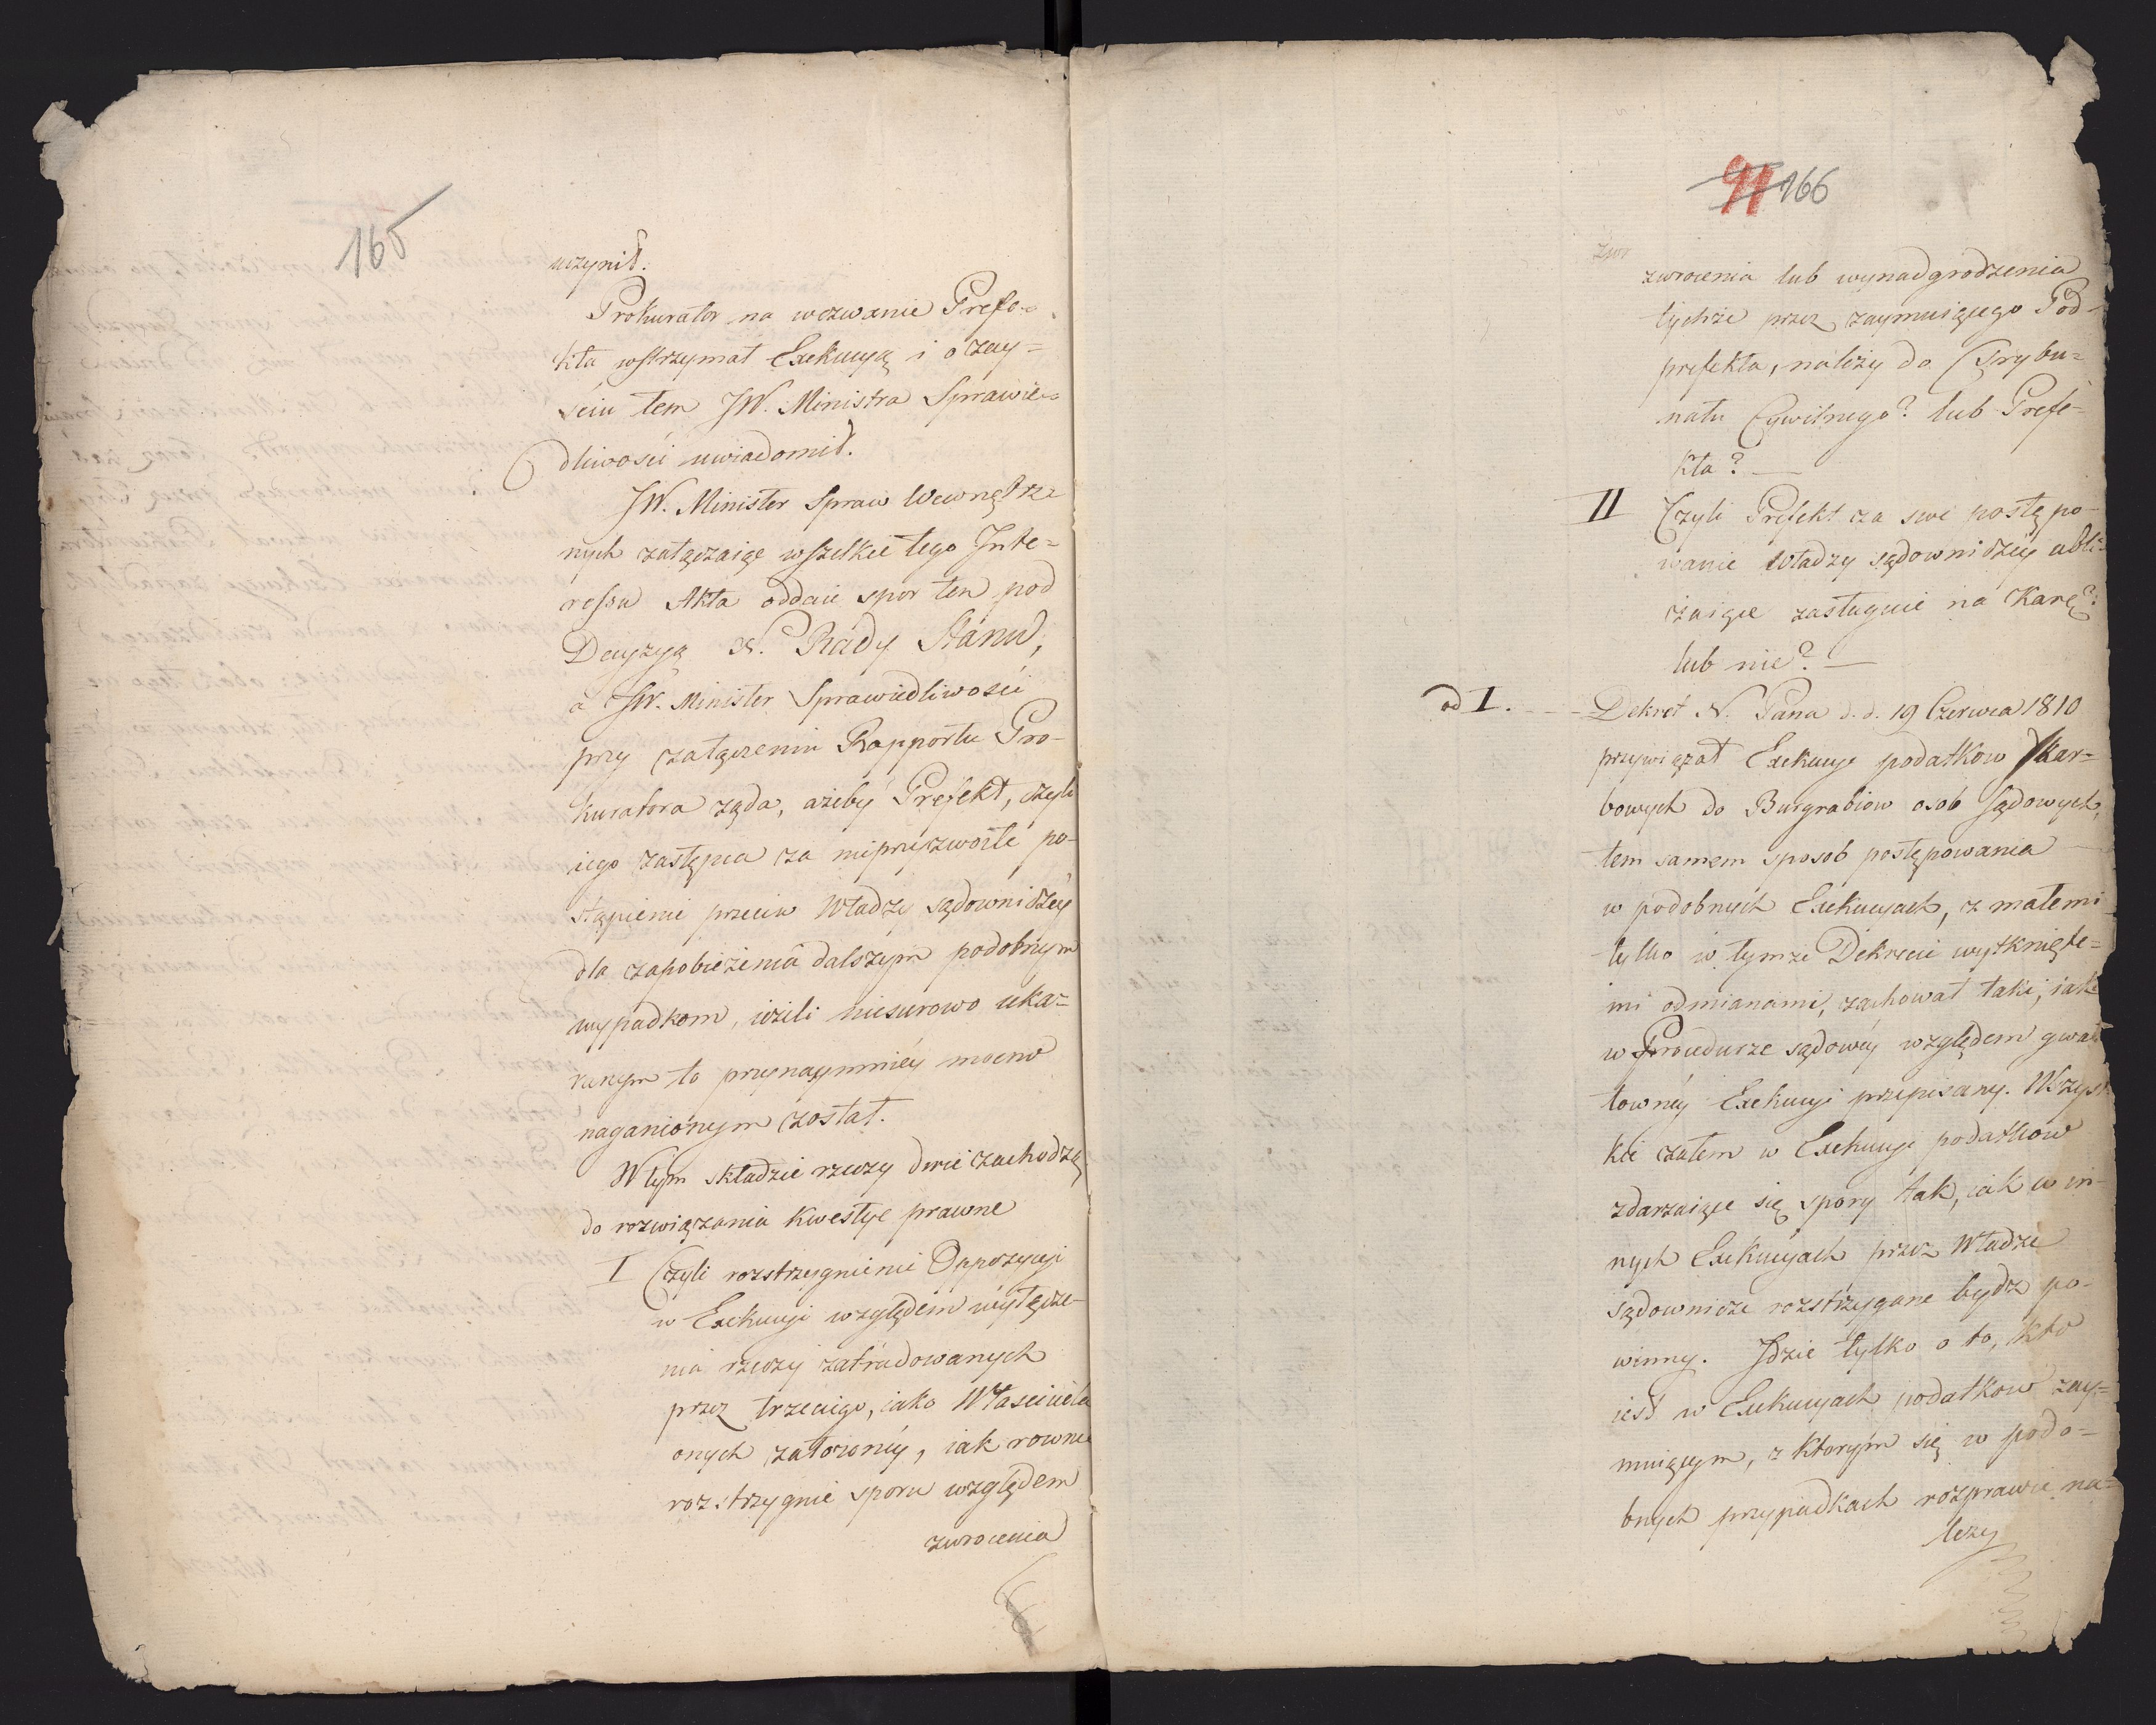 165
uczynił.
Prokurator na wezwanie Prefe=
kta wstrzymał Exekucyą i o zay=
sciu tem JW. Ministra Sprawie=
dliwości uwiadomił.
JW. Minister Spraw Wewnętrz=
nych załączaiąc wszelkie tego Inte=
ressu Akta oddaie spor ten pod
Decyzyą N. Rady Stanu,
a JW. Minister Sprawiedliwości
przy załączeniu Rapportu Pro-
kuratora żąda, ażeby Prefekt, czyli
iego zastępca za nieprzyzwoite po-
stąpienie przeciw Władzy sądowniczéy
dla zapobieżenia dalszym podobnym
wypadkom, ieżeli niesurowo uka=
ranym to przynaymniéy mocno
naganionym został.
W tym składzie rzeczy dwie zachodzą
do rozwiązania kwestye prawne
I Czyli rozstrzygnienie Oppozycyi
w Exekucyi względem wyłącze-
nia rzeczy zatradowanych
przez trzeciego, iako Właściciela
onych założonéy, iak rownie
rozstrzygnie sporu względem
zwrocenia
91 166
zwr
zwrocenia lub wynadgrodzenia
tychże przez zaymuiącego Pod-
prefekta, należy do Trybu=
nału Cywilnego? lub Prefe-
kta? —
II Czyli Prefekt za swe postępo-
wanie Władzy sądowniczéy ubli-
żaiące zasługuie na karę?
lub nie? —
od I. - - - Dekret N. Pana d. d. 19 Czerwca 1810
przywiązał Exekucye podatkow skar=
bowych do Burgrabiow osob sądowych,
tem samem sposob postępowania
w podobnych Exekucyach, z małemi
tylko w tymze Dekrecie wytknięte=
mi odmianami, zachował taki, iaki
w Procedurze sądowéy względem gwał
townéy Exekucyi przepisany. Wszyst
kie zatem w Exekucyi podatkow
zdarzaiące się spory tak, iak w in-
nych Exekucyach przez Władze
sądownicze rozstrzygane bydz po-
winny. Idzie tylko o to, kto
iest w Exekucyach podatkow zay=
muiącym, z ktorym się w podo=
bnych przypadkach rozprawić na=
leży